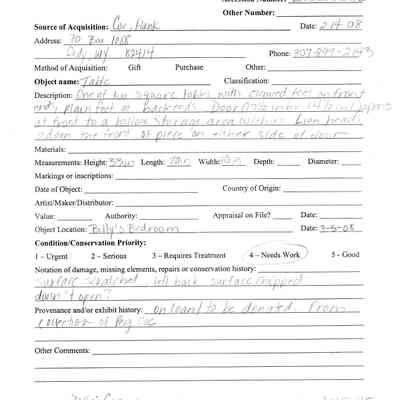 Other Number:
Source of Acquisition: Coe, Hank Date: 2-14-08
Address: PO Box 1088
Cody, WY 82414 Phone: 307-899-2143
Method of Acquisition: Gift Purchase Other:
Object name: Table Classification:
Description: One of two square tables with clawed feet on front
ends, plain feet on back ends. Door
at front to a hollow storage area within. Lion heads
adorn the front of piece on either side of door
Materials:
Measurements: Height: Length: Width: Depth: Diameter:
Markings or inscriptions:
Date of Object: Country of Origin:
Artist/Maker/Distributor:
Value: Authority: Appraisal on File? Date:
Object Location: Billy's Bedroom Date: 3-5-08
Condition/Conservation Priority:
1 – Urgent 2 – Serious 3 – Requires Treatment 4 – Needs Work 5 - Good
Notation of damage, missing elements, repairs or conservation history:
surface scratched, left back surface chipped
doesn't open?
Provenance and/or exhibit history: on loan to be donated. From
collection of Peg Coe
Other Comments: